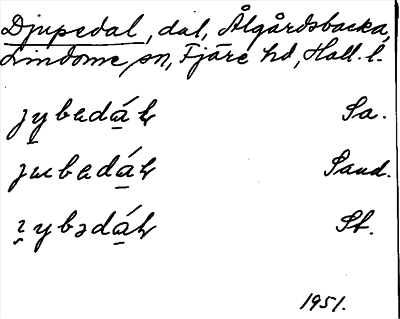 Djupedal, dal, Älgårdsbacka,
Lindome sn, Fjäre hd, Hall. l.
ȷy̠bɐdá̠ɬ Sa.
ȷɯbɐdá̠ɬ Sand.
ɿybədá̠ɬ St.
1951.